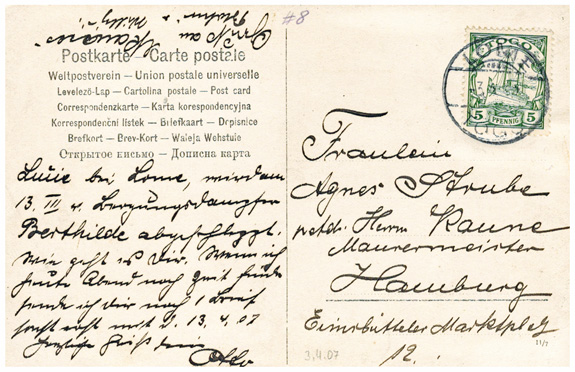 #8
Postkarte — Carte postale
Weltpostverein — Union postale universelle
Levelező-Lap — Cartolina postale — Post card
Correspondenzkarte — Karta korespondencyjna
Korrespondenční lístek — Briefkaart — Dopisnice
Brefkort — Brev-Kort — Waleja Wehstule
Открытое письмо — Дописна карта
bei Lome, wird am
13. III v. Bergungsdampfer
Berthilde abgeschleppt.
Wie geht es Dir. Wenn ich
heute Abend noch Zeit finde
sende ich Dir noch 1 Brief
13. 4. 07
Otto
TOGO
5 PFENNIG 5
LOME
Fräulein
Agnes Strube
Herrn Kaune
Maurermeister
Hamburg
Eimsbütteler Marktplatz
12.
3.4.07
11/7